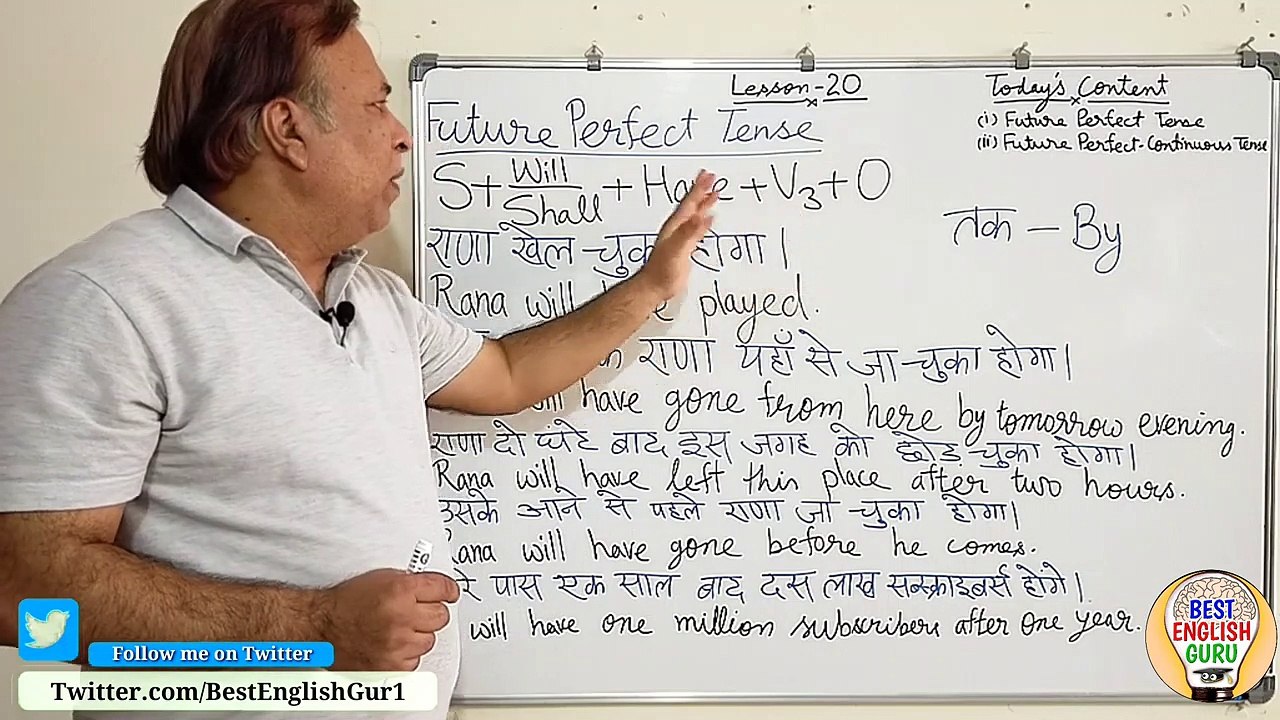 Lesson-20
Today's Content
(i) Future Perfect Tense
(ii) Future Perfect-Continuous Tense
Future Perfect Tense
S + Will/Shall + Have + V3 + O
तक – By
राणा खेल चुका होगा।
Rana will have played.
राणा यहाँ से जा चुका होगा।
will have gone from here by tomorrow evening.
राणा दो घंटे बाद इस जगह को छोड़ चुका होगा।
Rana will have left this place after two hours.
उसके आने से पहले राणा जा चुका होगा।
Rana will have gone before he comes.
पास एक साल बाद दस लाख सब्स्क्राइबर्स होंगे।
will have one million subscribers after one year.
Follow me on Twitter
Twitter.com/BestEnglishGur1
BEST
ENGLISH
GURU